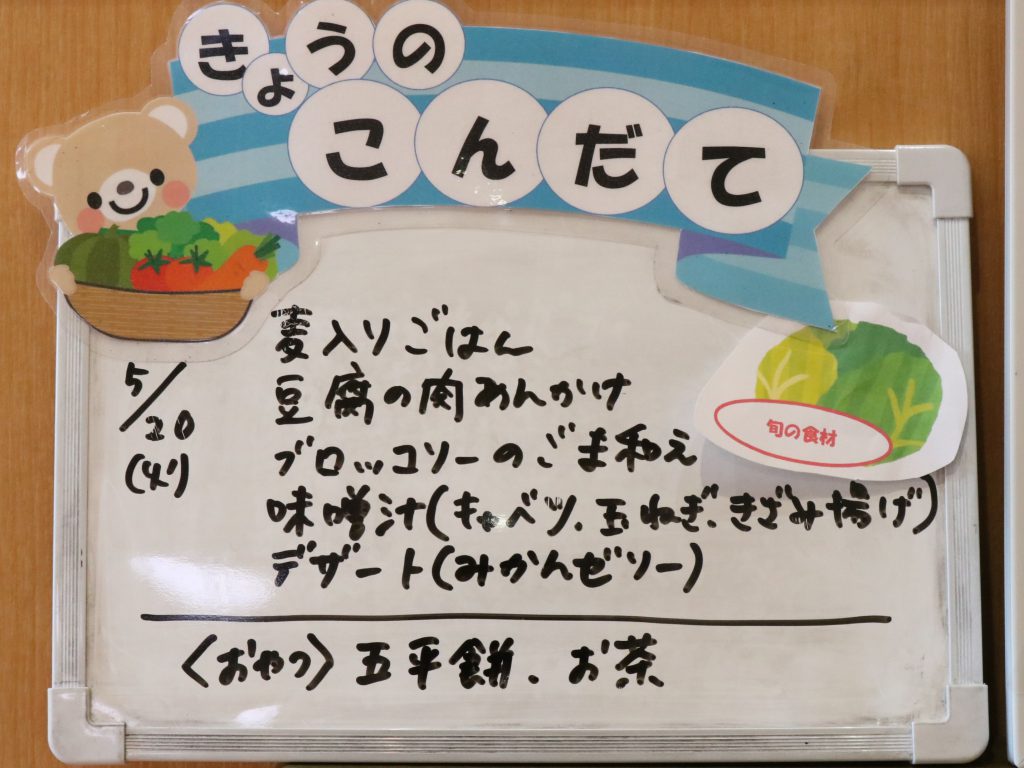 きょうの
こんだて
旬の食材
5/20
(火)
麦入りごはん
豆腐の肉あんかけ
ブロッコリーのごま和え
味噌汁(キャベツ、玉ねぎ、きざみ揚げ)
デザート(みかんゼリー)
〈おやつ〉五平餅、お茶